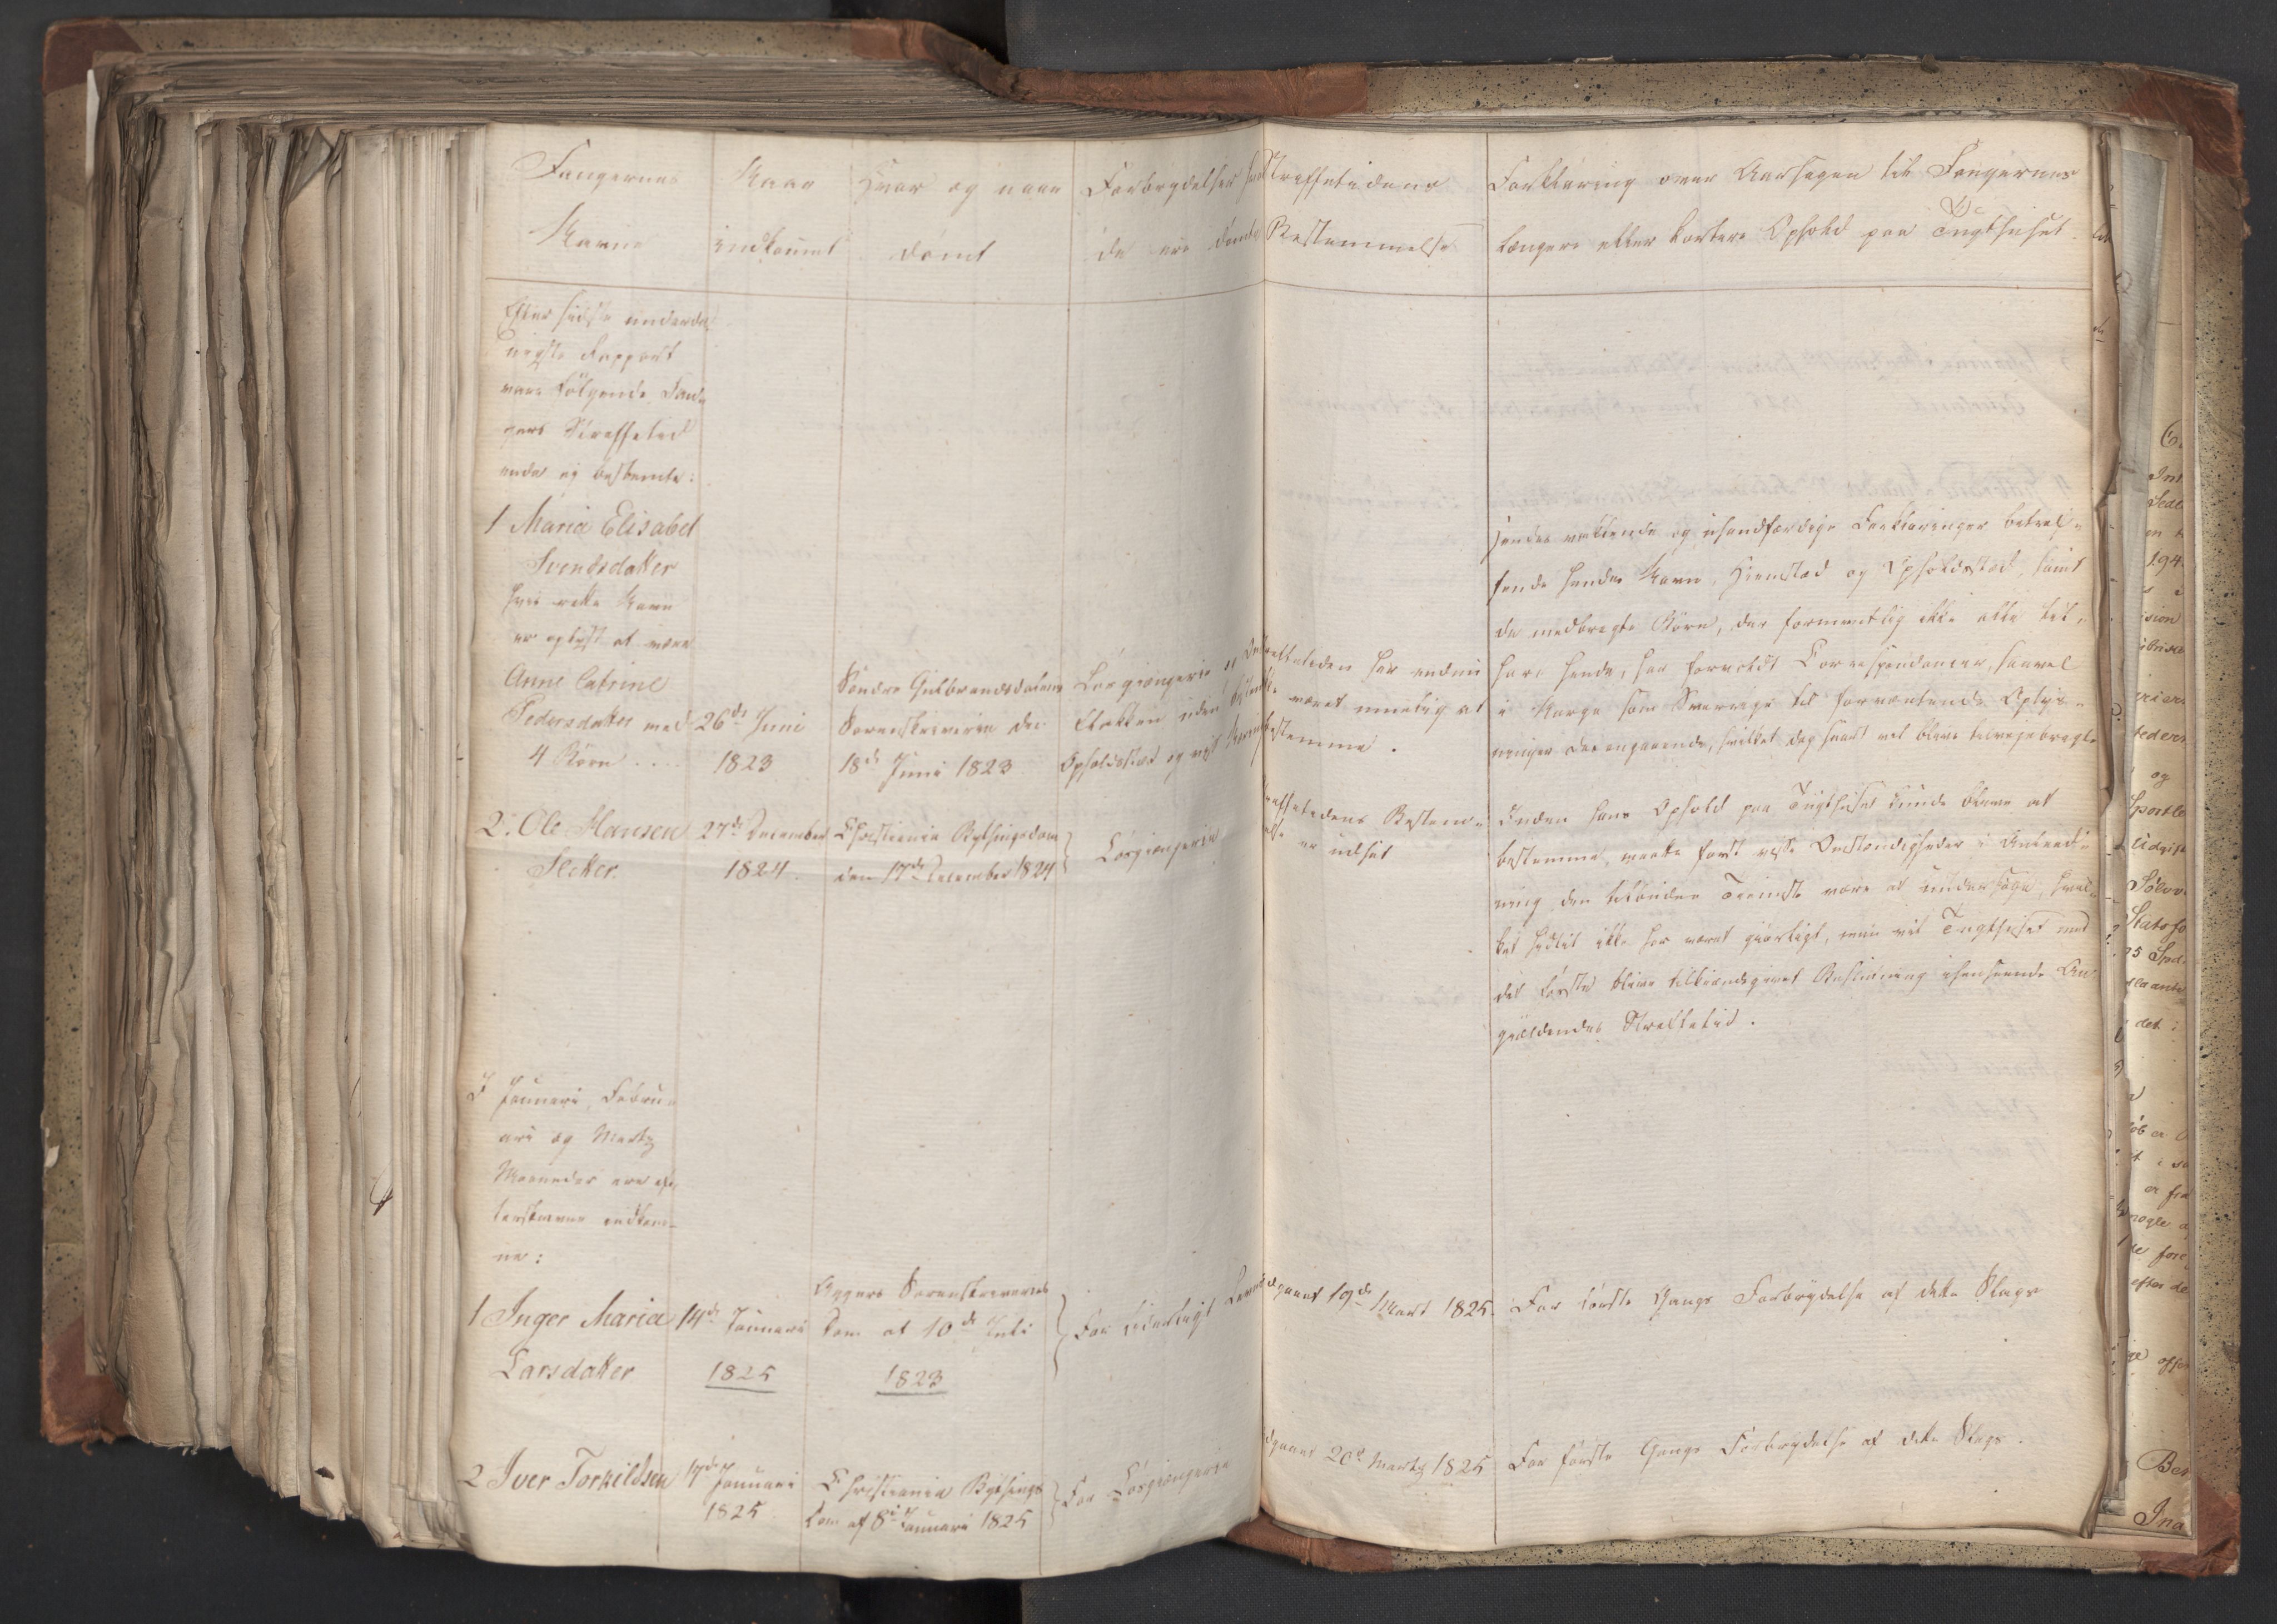 Fangernes
Navne
Naar
indkommet
Hvor og naar
dømt
Forbrydelser
de ere dømte
Straffetidens
Bestemmelse
Forklaring over Aarsagen til Fangernes
længere eller kortere Ophold paa Tugthuset.
Efter sidste underda
nigste Rapport
vare følgende Fan
gers Straffetid
endnu ej bestemte:
1 Maria Elisabet
Svendsdatter
hvis rette Navn
er oplyst at være
Anne Catrine
Pedersdatter med
4 Børn ....
26de Juni
1823
Søndre Gulbrandsdalens
Sorenskriverie den
18de Juni 1823
Løsgjængerie
Flakken uden
Opholdssted og
Straffetiden har endnu
ikke været muelig at
bestemme.
Hendes vaklende og usandfærdige Forklaringer betref-
fende hendes Navn, Hjemsted og Opholdssted, samt
de medbragte Børn, der formentlig ikke alle til-
høre hende, har forvoldt Correspondancer, saavel
i Norge som Sverrige til forventende Oplys-
ninger desangaaende, hvilket dog snart vil blive tilvejebragt
2. Ole Hansen
Sletter.
27de December
1824.
Christiania Bythingsdom
den 17de December 1824
Løsgjængerie
Straffetidens Bestem-
melse er udsat
Inden hans Ophold paa Tugthuset kunde blive at
bestemme, maatte først visse Omstændigheder i Anled-
ning den tilbuden Tjeneste være at undersøge, hvil-
ket hidtil ikke har været gjørligt, men vil Tugthuset med
det første blive tilkjendegivet Beslutning ihenseende An-
gjældendes Straffetid.
I Januari, Febru-
ari og Martz
Maaneder ere ef-
terskrevne indkom-
ne:
1 Inger Maria
Larsdatter
14de Januari
1825
Aggers Sorenskriveries
Dom af 10de Juli
1823
For liderligt Levnet
Udgaaet 19de Mart 1825.
For første Gangs Forbrydelse af dette Slags
2 Iver Torkildsen
17de Januari
1825.
Christiania Bythings
Dom af 8de Januari 1825
For Løsgjængerie
Udgaaet 20de Martz 1825
For første Gangs Forbrydelse af dette Slags.